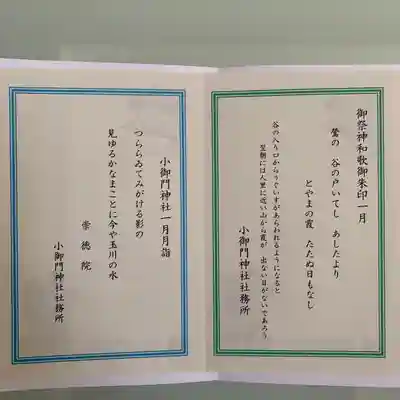 御祭神和歌御朱印一月
鶯の　谷の戸いてし　あしたより
とやまの霞　たたぬ日もなし
谷の入り口からうぐいすがあらわれるようになると
翌朝には人里に近い山から霞が　出ない日がないであろう
小御門神社社務所
小御門神社一月月詣
つららゐてみがける影の
見ゆるかなまことに今や玉川の水
崇徳院
小御門神社社務所